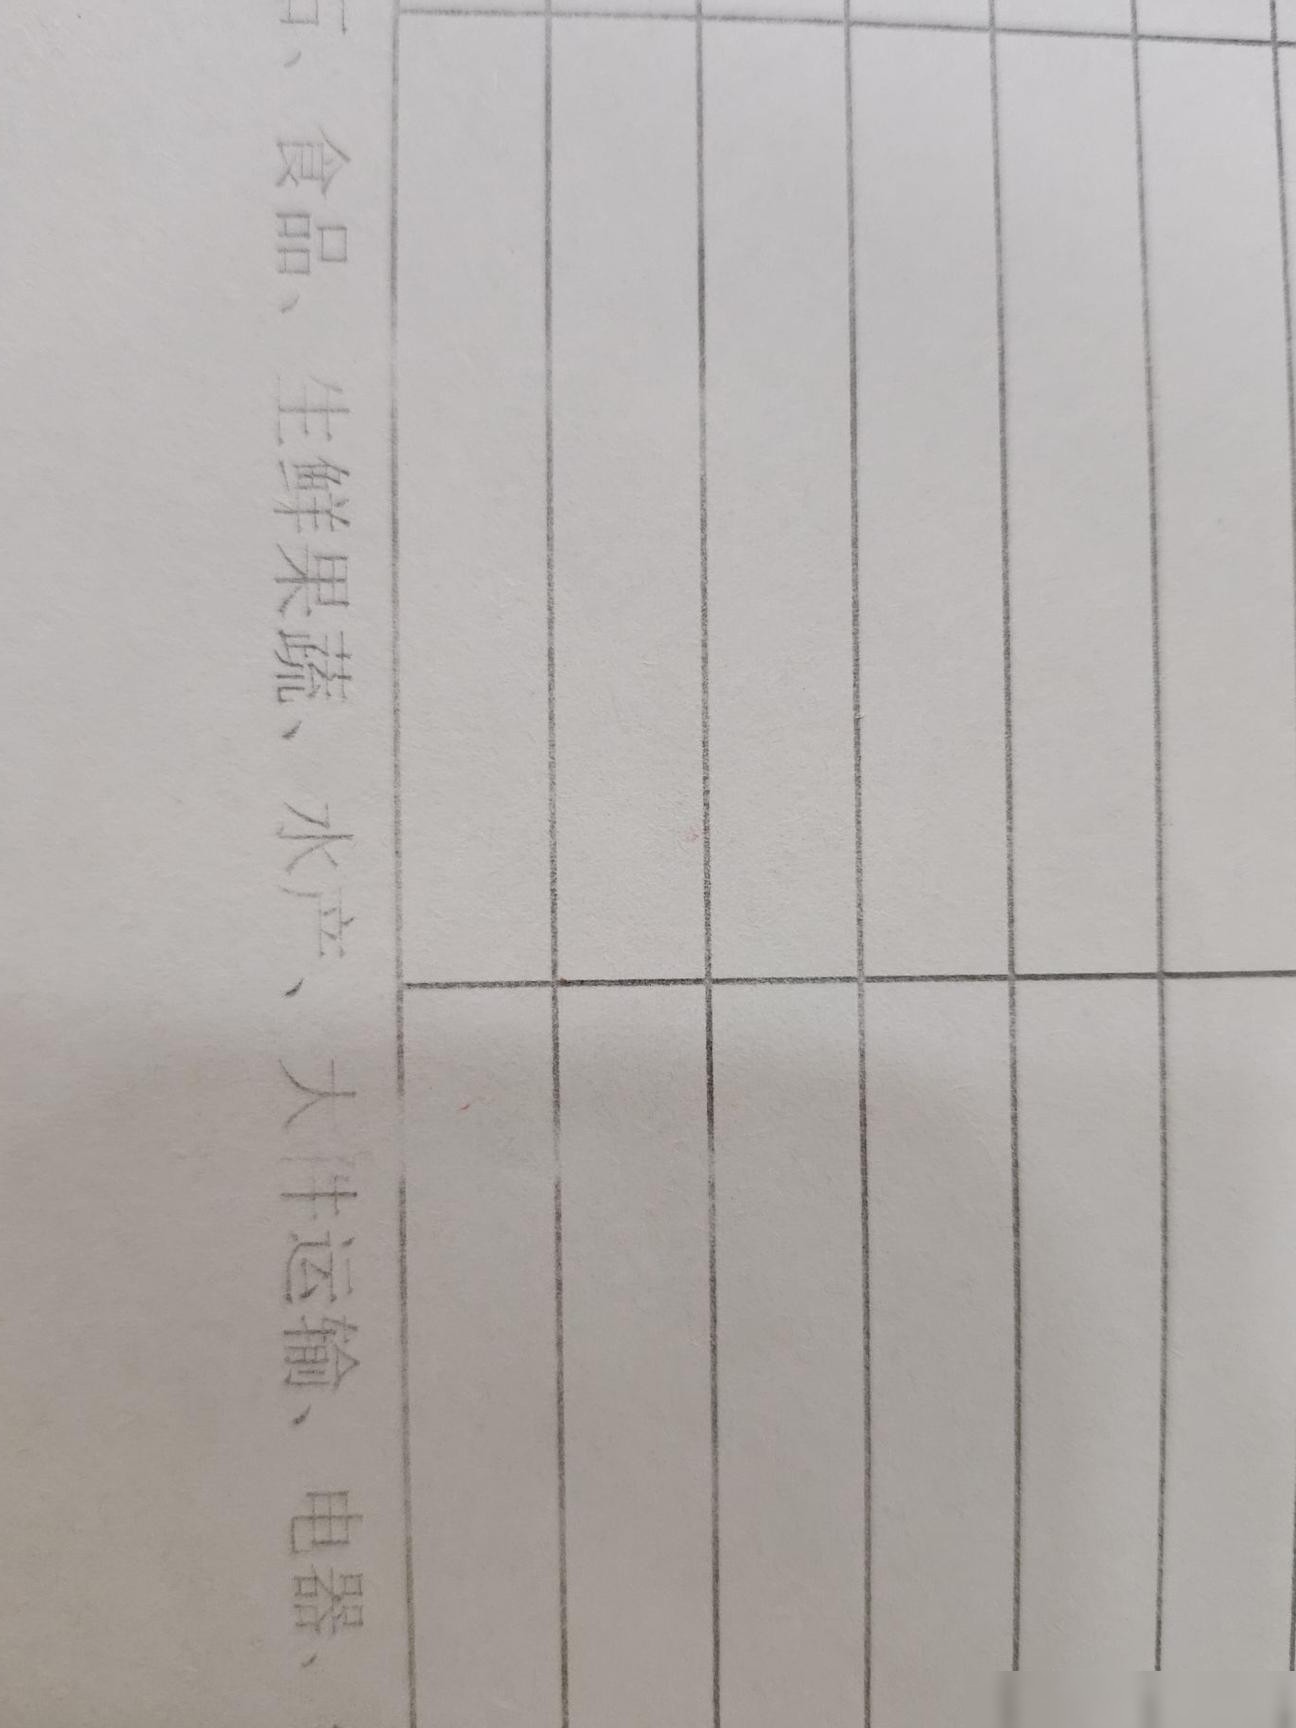 、食品、生鲜果蔬、水产、大件运输、电器、